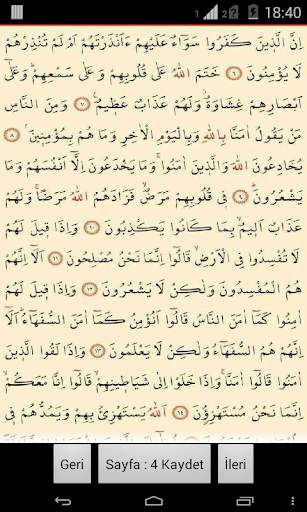 18:40
اِنَّ الَّذٖينَ كَفَرُوا سَوَٓاءٌ عَلَيْهِمْ ءَاَنْذَرْتَهُمْ اَمْ لَمْ تُنْذِرْهُمْ
لَا يُؤْمِنُونَ ﴿٦﴾ خَتَمَ اللّٰهُ عَلٰى قُلُوبِهِمْ وَعَلٰى سَمْعِهِمْ وَعَلٰٓى
اَبْصَارِهِمْ غِشَاوَةٌ وَلَهُمْ عَذَابٌ عَظٖيمٌ ﴿٧﴾ وَمِنَ النَّاسِ
مَنْ يَقُولُ اٰمَنَّا بِاللّٰهِ وَبِالْيَوْمِ الْاٰخِرِ وَمَا هُمْ بِمُؤْمِنٖينَ ﴿٨﴾
يُخَادِعُونَ اللّٰهَ وَالَّذٖينَ اٰمَنُوا وَمَا يَخْدَعُونَ اِلَّٓا اَنْفُسَهُمْ وَمَا
يَشْعُرُونَ ﴿٩﴾ فٖى قُلُوبِهِمْ مَرَضٌ فَزَادَهُمُ اللّٰهُ مَرَضًا وَلَهُمْ
عَذَابٌ اَلٖيمٌ بِمَا كَانُوا يَكْذِبُونَ ﴿١٠﴾ وَاِذَا قٖيلَ لَهُمْ
لَا تُفْسِدُوا فِى الْاَرْضِ قَالُٓوا اِنَّمَا نَحْنُ مُصْلِحُونَ ﴿١١﴾ اَلَٓا اِنَّهُمْ
هُمُ الْمُفْسِدُونَ وَلٰكِنْ لَا يَشْعُرُونَ ﴿١٢﴾ وَاِذَا قٖيلَ لَهُمْ
اٰمِنُوا كَمَٓا اٰمَنَ النَّاسُ قَالُٓوا اَنُؤْمِنُ كَمَٓا اٰمَنَ السُّفَهَٓاءُ اَلَٓا
اِنَّهُمْ هُمُ السُّفَهَٓاءُ وَلٰكِنْ لَا يَعْلَمُونَ ﴿١٣﴾ وَاِذَا لَقُوا الَّذٖينَ
اٰمَنُوا قَالُٓوا اٰمَنَّا وَاِذَا خَلَوْا اِلٰى شَيَاطٖينِهِمْ قَالُٓوا اِنَّا مَعَكُمْ
اِنَّمَا نَحْنُ مُسْتَهْزِؤُنَ ﴿١٤﴾ اَللّٰهُ يَسْتَهْزِئُ بِهِمْ وَيَمُدُّهُمْ فٖى
Geri Sayfa : 4 Kaydet İleri